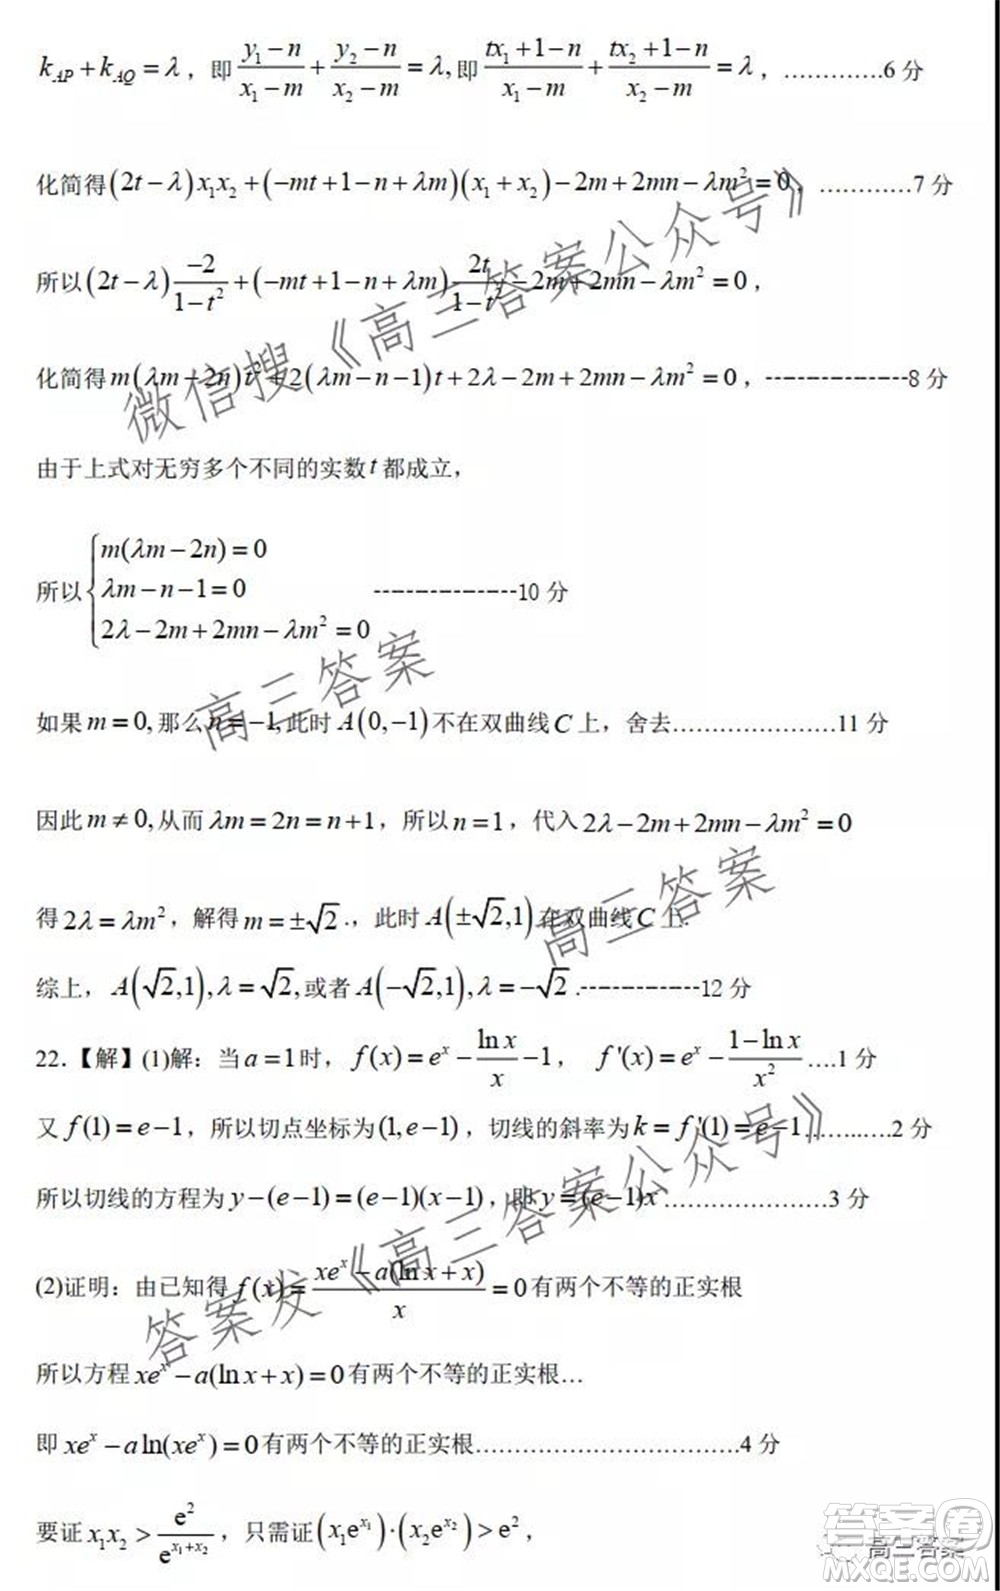 k_{AP}+k_{AQ}=λ，即 \frac{y_1-n}{x_1-m}+\frac{y_2-n}{x_2-m}=λ,即 \frac{tx_1+1-n}{x_1-m}+\frac{tx_2+1-n}{x_2-m}=λ，………….6 分
化简得(2t-λ)x_1x_2+(-mt+1-n+λm)(x_1+x_2)-2m+2mn-λm^2=0，…………7 分
所以(2t-λ)\frac{-2}{1-t^2}+(-mt+1-n+λm)\frac{2t}{1-t^2}-2m+2mn-λm^2=0，
化简得m(λm-2n)t^2+2(λm-n-1)t+2λ-2m+2mn-λm^2=0，--------------8 分
由于上式对无穷多个不同的实数 t 都成立，
所以{m(λm-2n)=0
λm-n-1=0 --------------10 分
2λ-2m+2mn-λm^2=0
如果 m=0,那么 n=-1,此时 A(0,-1)不在双曲线 C 上，舍去…………………11 分
因此 m≠0,从而 λm=2n=n+1，所以 n=1，代入 2λ-2m+2mn-λm^2=0
得 2λ=λm^2，解得 m=±√2.，此时 A(±√2,1)在双曲线 C 上.
综上，A(√2,1),λ=√2,或者 A(-√2,1),λ=-√2.------------12 分
22.【解】(1)解：当 a=1 时，f(x)=e^x-\frac{\ln x}{x}-1，f'(x)=e^x-\frac{1-\ln x}{x^2}….1 分
又 f(1)=e-1，所以切点坐标为(1,e-1)，切线的斜率为 k=f'(1)=e-1……..….2 分
所以切线的方程为 y-(e-1)=(e-1)(x-1)，即 y=(e-1)x…………………3 分
(2)证明：由已知得 f(x)=\frac{xe^x-a(\ln x+x)}{x}=0 有两个不等的正实根
所以方程 xe^x-a(ln x+x)=0 有两个不等的正实根…
即 xe^x-a ln(xe^x)=0 有两个不等的正实根……………………………4 分
要证 x_1x_2>\frac{e^2}{e^{x_1+x_2}}，只需证(x_1e^{x_1})·(x_2e^{x_2})>e^2，
微信搜《高三答案公众号》
高三答案
高三答案
答案发《高三答案公众号》
高三答案
答案圈
MXQE.COM